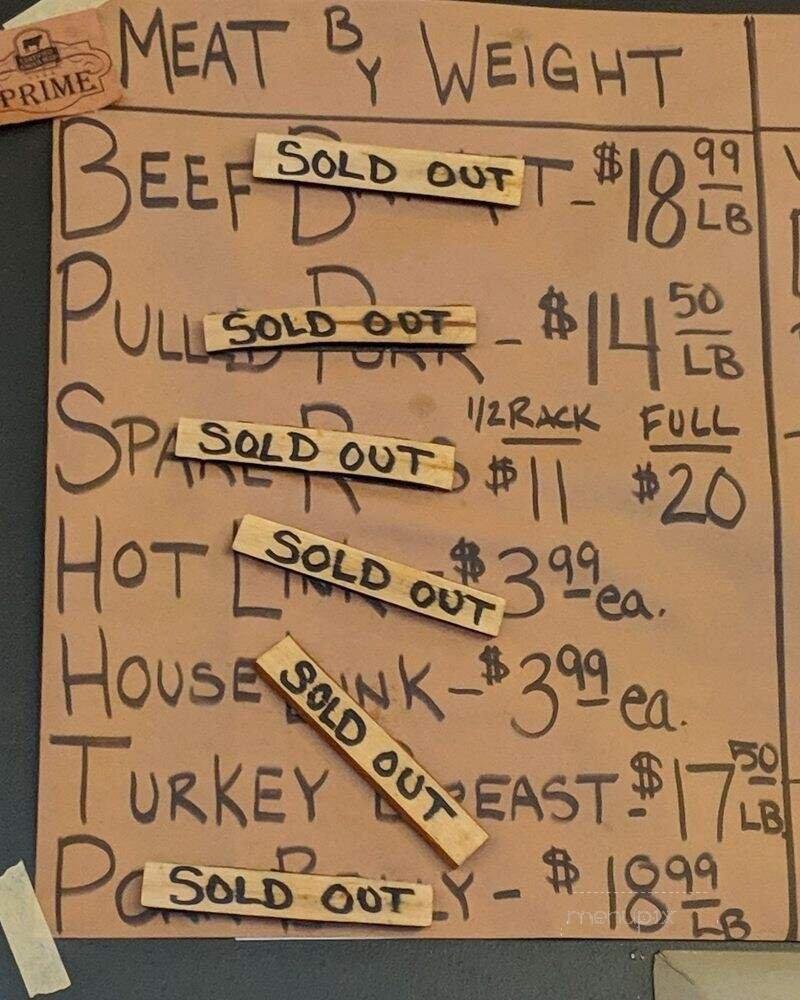 PRIME
MEAT BY WEIGHT
BEEF SOLD OUT T - $18 99 LB
PULL SOLD OUT - $14 50 LB
1/2 RACK FULL
SPA SOLD OUT $11 $20
HOT SOLD OUT - $3 99 ea.
HOUSE SOLD OUT INK - $3 99 ea.
TURKEY BREAST - $17 50 LB
SOLD OUT LY - $18 99 LB
menupix